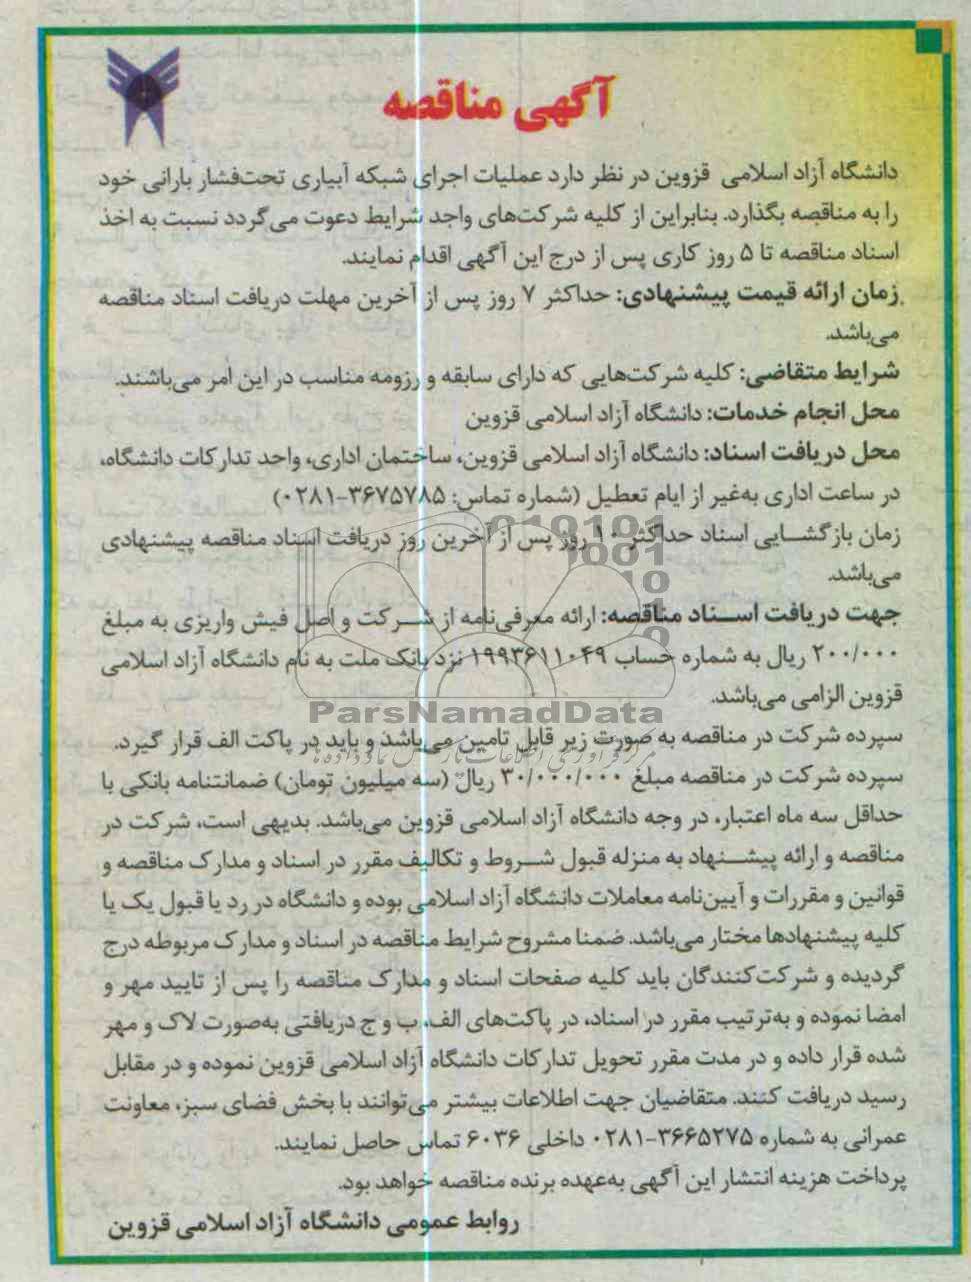 آگهی مناقصه
دانشگاه آزاد اسلامی قزوین در نظر دارد عملیات اجرای شبکه آبیاری تحت‌فشار بارانی خود
را به مناقصه بگذارد. بنابراین از کلیه شرکت‌های واجد شرایط دعوت می‌گردد نسبت به اخذ
اسناد مناقصه تا ۵ روز کاری پس از درج این آگهی اقدام نمایند.
زمان ارائه قیمت پیشنهادی: حداکثر ۷ روز پس از آخرین مهلت دریافت اسناد مناقصه
می‌باشد.
شرایط متقاضی: کلیه شرکت‌هایی که دارای سابقه و رزومه مناسب در این امر می‌باشند.
محل انجام خدمات: دانشگاه آزاد اسلامی قزوین
محل دریافت اسناد: دانشگاه آزاد اسلامی قزوین، ساختمان اداری، واحد تدارکات دانشگاه،
در ساعت اداری به‌غیر از ایام تعطیل (شماره تماس: ۳۶۷۵۷۸۵-۰۲۸۱)
زمان بازگشایی اسناد حداکثر ۱۰ روز پس از آخرین روز دریافت اسناد مناقصه پیشنهادی
می‌باشد.
جهت دریافت اسناد مناقصه: ارائه معرفی‌نامه از شرکت و اصل فیش واریزی به مبلغ
۲۰۰/۰۰۰ ریال به شماره حساب ۱۹۹۳۶۱۱۰۴۹ نزد بانک ملت به نام دانشگاه آزاد اسلامی
قزوین الزامی می‌باشد.
ParsNamadData
سپرده شرکت در مناقصه به صورت زیر قابل تامین می‌باشد و باید در پاکت الف قرار گیرد.
سپرده شرکت در مناقصه مبلغ ۳۰/۰۰۰/۰۰۰ ریال (سه میلیون تومان) ضمانتنامه بانکی با
حداقل سه ماه اعتبار، در وجه دانشگاه آزاد اسلامی قزوین می‌باشد. بدیهی است، شرکت در
مناقصه و ارائه پیشنهاد به منزله قبول شروط و تکالیف مقرر در اسناد و مدارک مناقصه و
قوانین و مقررات و آیین‌نامه معاملات دانشگاه آزاد اسلامی بوده و دانشگاه در رد یا قبول یک یا
کلیه پیشنهادها مختار می‌باشد. ضمنا مشروح شرایط مناقصه در اسناد و مدارک مربوطه درج
گردیده و شرکت‌کنندگان باید کلیه صفحات اسناد و مدارک مناقصه را پس از تایید مهر و
امضا نموده و به‌ترتیب مقرر در اسناد، در پاکت‌های الف، ب و ج دریافتی به‌صورت لاک و مهر
شده قرار داده و در مدت مقرر تحویل تدارکات دانشگاه آزاد اسلامی قزوین نموده و در مقابل
رسید دریافت کنند. متقاضیان جهت اطلاعات بیشتر می‌توانند با بخش فضای سبز، معاونت
عمرانی به شماره ۳۶۶۵۲۷۵-۰۲۸۱ داخلی ۶۰۳۶ تماس حاصل نمایند.
پرداخت هزینه انتشار این آگهی به‌عهده برنده مناقصه خواهد بود.
روابط عمومی دانشگاه آزاد اسلامی قزوین